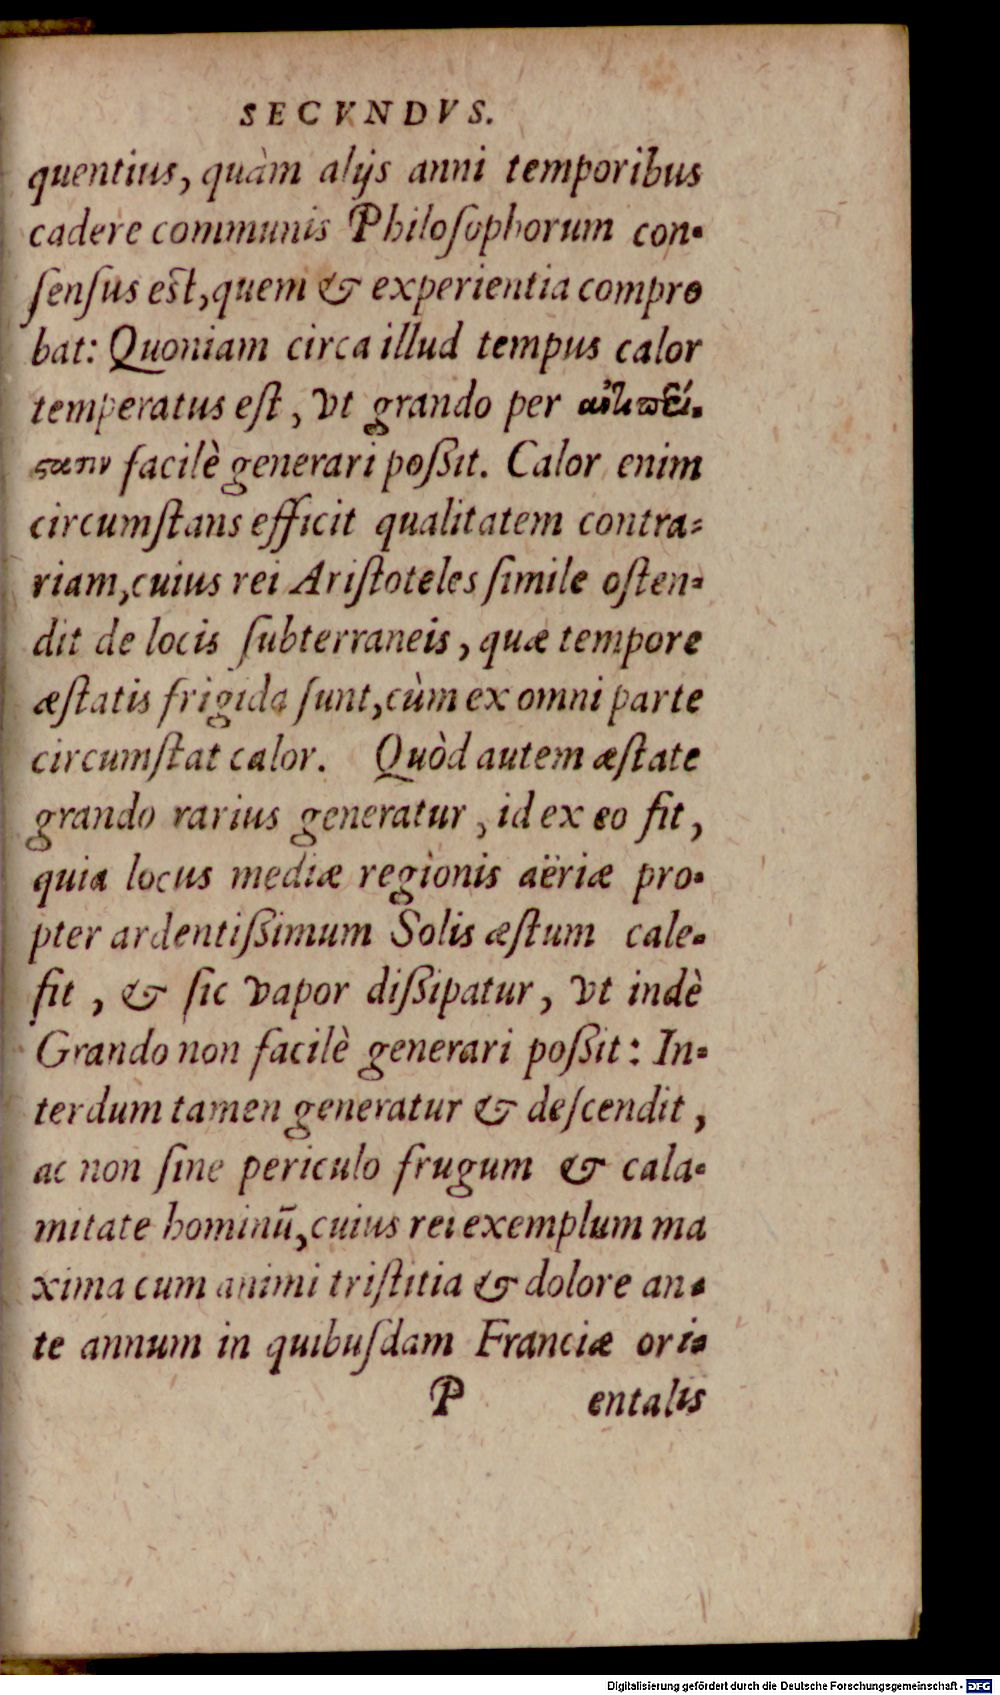 SECVNDVS.
quentius, quàm alijs anni temporibus
cadere communis Philoſophorum con-
ſenſus est, quem & experientia compro
bat: Quoniam circa illud tempus calor
temperatus eſt, vt grando per
facilè generari poßit. Calor enim
circumſtans efficit qualitatem contra-
riam, cuius rei Ariſtoteles ſimile oſten-
dit de locis ſubterraneis, quæ tempore
æſtatis frigida ſunt, cùm ex omni parte
circumſtat calor. Quòd autem æſtate
grando rarius generatur, id ex eo fit,
quia locus mediæ regionis aëriæ pro-
pter ardentißimum Solis æſtum cale-
fit, & ſic vapor dißipatur, vt indè
Grando non facilè generari poßit: In-
terdum tamen generatur & deſcendit,
ac non ſine periculo frugum & cala-
mitate hominū, cuius rei exemplum ma
xima cum animi triſtitia & dolore an-
te annum in quibuſdam Franciæ ori-
P entalis
Digitalisierung gefördert durch die Deutsche Forschungsgemeinschaft - DFG